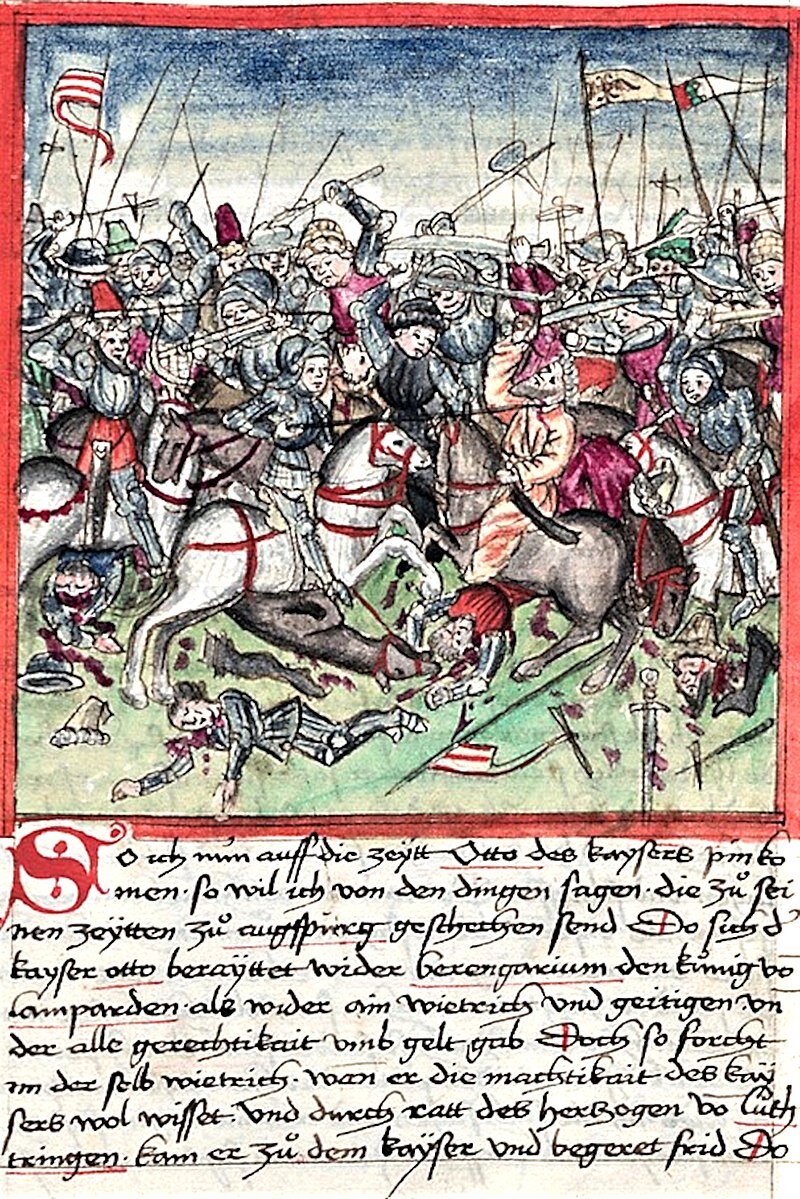 So ich nun auff die zeytt Otto des kaysers pin ko
men · so wil ich von den dingen sagen · die zů sei
nen zeytten zů augspurg geschechen send Do sich d
kayser otto berayttet wider berengarium den kúnig vo
lamparden · als wider ain wietrich vnd geitigen vn
der alle gerechtikait vmb gelt gab Doch so forcht
im der selb wietrich · wan er die machtikait des kay
sers wol wisset · vnd durch ratt des herzogen vo luth
tringen · kam er zů dem kaÿser vnd begeret frid Do